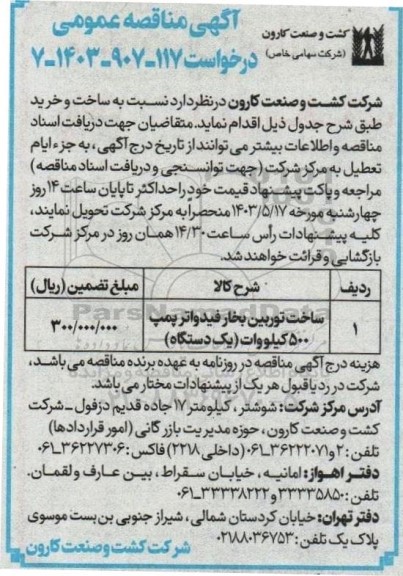 آگهی مناقصه عمومی
درخواست ۱۱۷-۹۰۷-۱۴۰۳-۷
کشت و صنعت کارون
(شرکت سهامی خاص)
شرکت کشت و صنعت کارون در نظر دارد نسبت به ساخت و خرید
طبق شرح جدول ذیل اقدام نماید. متقاضیان جهت دریافت اسناد
مناقصه و اطلاعات بیشتر می توانند از تاریخ درج آگهی، به جزء ایام
تعطیل به مرکز شرکت (جهت توانسنجی و دریافت اسناد مناقصه)
مراجعه و پاکت پیشنهاد قیمت خود را حداکثر تا پایان ساعت ۱۴ روز
چهارشنبه مورخه ۱۴۰۳/۵/۱۷ منحصراً به مرکز شرکت تحویل نمایند،
کلیه پیشنهادات رأس ساعت ۱۴/۳۰ همان روز در مرکز شرکت
بازگشایی و قرائت خواهند شد.
ردیف شرح کالا مبلغ تضمین (ریال)
۱ ساخت توربین بخار فیدواتر پمپ ۳۰۰/۰۰۰/۰۰۰
۵۰۰ کیلووات (یک دستگاه)
هزینه درج آگهی مناقصه در روزنامه به عهده برنده مناقصه می باشد،
شرکت در رد یا قبول هر یک از پیشنهادات مختار می باشد.
آدرس مرکز شرکت: شوشتر، کیلومتر ۱۷ جاده قدیم دزفول - شرکت
کشت و صنعت کارون، حوزه مدیریت بازرگانی (امور قراردادها)
تلفن: ۲ و ۳۶۲۲۲۰۷۱-۰۶۱ (داخلی ۲۲۱۸) فاکس: ۳۶۲۲۷۳۰۶-۰۶۱
دفتر اهواز: امانیه، خیابان سقراط، بین عارف و لقمان.
تلفن: ۳۳۳۳۵۸۵۰ و ۳۳۳۳۸۲۲۲-۰۶۱
دفتر تهران: خیابان کردستان شمالی، شیراز جنوبی بن بست موسوی
پلاک یک تلفن: ۰۲۱۸۸۰۳۶۷۵۳
شرکت کشت و صنعت کارون